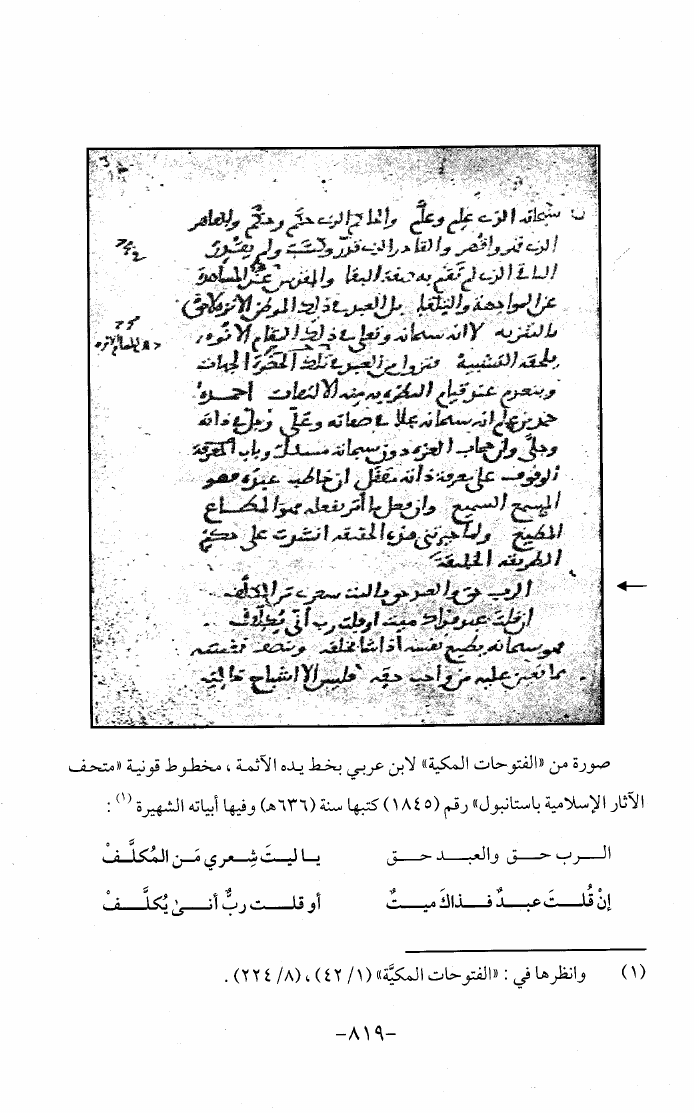 سبحانه الذي علم وعلَّم والحاكم الذي حكم وحكَّم والقاهر
الذي قهر وأقهر والقادر الذي قدّر وكسب ولم يقدر
الباقي الذي لم تقم به صفة البقا والمقدس عند المشاهدة
عن المواجهة والتلقا بل العبد في ذلك الموطن الانزه لاحق
بالتنزيه لا انه سبحانه وتعلى في ذلك المقام الانوه
يلحقه التشبيه فتزول من العبد في تلك الحضرة الجهات
وينعدم عند قيام النظرة به منه الالتفات احمده
حمد من علم انه سبحانه علا في صفاته وعلّى وجل في ذاته
وجلّى وان حجاب العزة دون سبحانه مسدل وباب
الوقوف على معرفة ذاته مقفل ان خاطب عبده فهو
المسمع السميع وان فعل ما أمر بفعله فهو المطاع
المطيع ولما حيرتني هذه الحقيقة انشدت على حكم
الطريقة للخليقة
الرب حق والعبد حق يا ليت شعري من المكلف
ان قلت عبد فذاك ميت او قلت رب أنى يكلف
فهو سبحانه يطيع نفسه اذا شا بخلقه وينصف نفسه
مما تعين عليه من واجب حقه فليس الا اشباح خالية
صورة من «الفتوحات المكية» لابن عربي بخط يده الآثمة ، مخطوط قونية «متحف
الآثار الإسلامية باستانبول» رقم (١٨٤٥) كتبها سنة (٦٣٦هـ) وفيها أبياته الشهيرة (١) :
الـــرب حـــق والعبـــد حـــق يـا ليـتَ شِـعري مَـن المُكلَّـفْ
إنْ قُلـــتَ عبـــدٌ فـــذاكَ ميـــتٌ أو قلـــت ربٌّ أنـــىٰ يُكلَّـــفْ
(١) وانظرها في : «الفتوحات المكيَّة» (١/ ٤٢)، (٨/ ٢٢٤) .
-٨١٩-